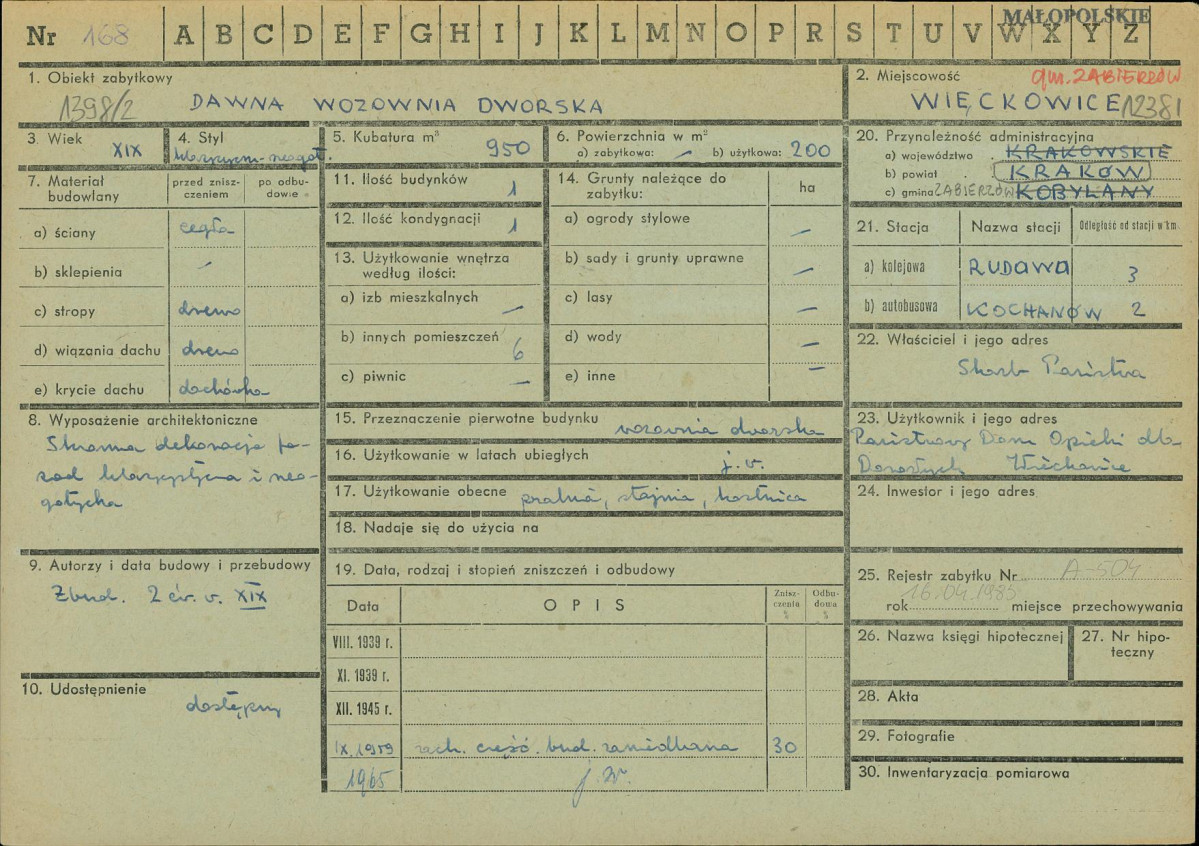 MAŁOPOLSKIE
Nr 168 A B C D E F G H I J K L M N O P R S T U V W X Y Z
1. Obiekt zabytkowy
1398/2 DAWNA WOZOWNIA DWORSKA
2. Miejscowość gm. ZABIERZÓW
WIĘCKOWICE 12381
3. Wiek XIX
4. Styl
klasycyzm-neogot.
5. Kubatura m³ 950
6. Powierzchnia w m²
a) zabytkowa: — b) użytkowa: 200
7. Materiał budowlany
przed zniszczeniem
po odbudowie
a) ściany cegła
b) sklepienia —
c) stropy drewno
d) wiązania dachu drewno
e) krycie dachu dachówka
8. Wyposażenie architektoniczne
Skromna dekoracja fa-
sad klasycystyczna i neo-
gotycka
9. Autorzy i data budowy i przebudowy
Zbud. 2 ćw. w. XIX
10. Udostępnienie
dostępny
11. Ilość budynków 1
12. Ilość kondygnacji 1
13. Użytkowanie wnętrza
według ilości:
a) izb mieszkalnych —
b) innych pomieszczeń 6
c) piwnic —
14. Grunty należące do
zabytku: ha
a) ogrody stylowe —
b) sady i grunty uprawne —
c) lasy —
d) wody —
e) inne —
15. Przeznaczenie pierwotne budynku wozownia dworska
16. Użytkowanie w latach ubiegłych j. w.
17. Użytkowanie obecne pralnia, stajnia, kostnica
18. Nadaje się do użycia na
19. Data, rodzaj i stopień zniszczeń i odbudowy
Data OPIS Zniszczenia % Odbudowa %
VIII. 1939 r.
XI. 1939 r.
XII. 1945 r.
IX. 1959 zach. część bud. zaniedbana 30
1965 j. w.
20. Przynależność administracyjna
a) województwo KRAKOWSKIE
b) powiat KRAKÓW
c) gmina ZABIERZÓW KOBYLANY
21. Stacja Nazwa stacji Odległość od stacji w km
a) kolejowa RUDAWA 3
b) autobusowa KOCHANÓW 2
22. Właściciel i jego adres
Skarb Państwa
23. Użytkownik i jego adres
Państwowy Dom Opieki dla
Dorosłych Więckowice
24. Inwestor i jego adres
25. Rejestr zabytku Nr A-504
16.04.1985
rok miejsce przechowywania
26. Nazwa księgi hipotecznej
27. Nr hipo-
teczny
28. Akta
29. Fotografie
30. Inwentaryzacja pomiarowa